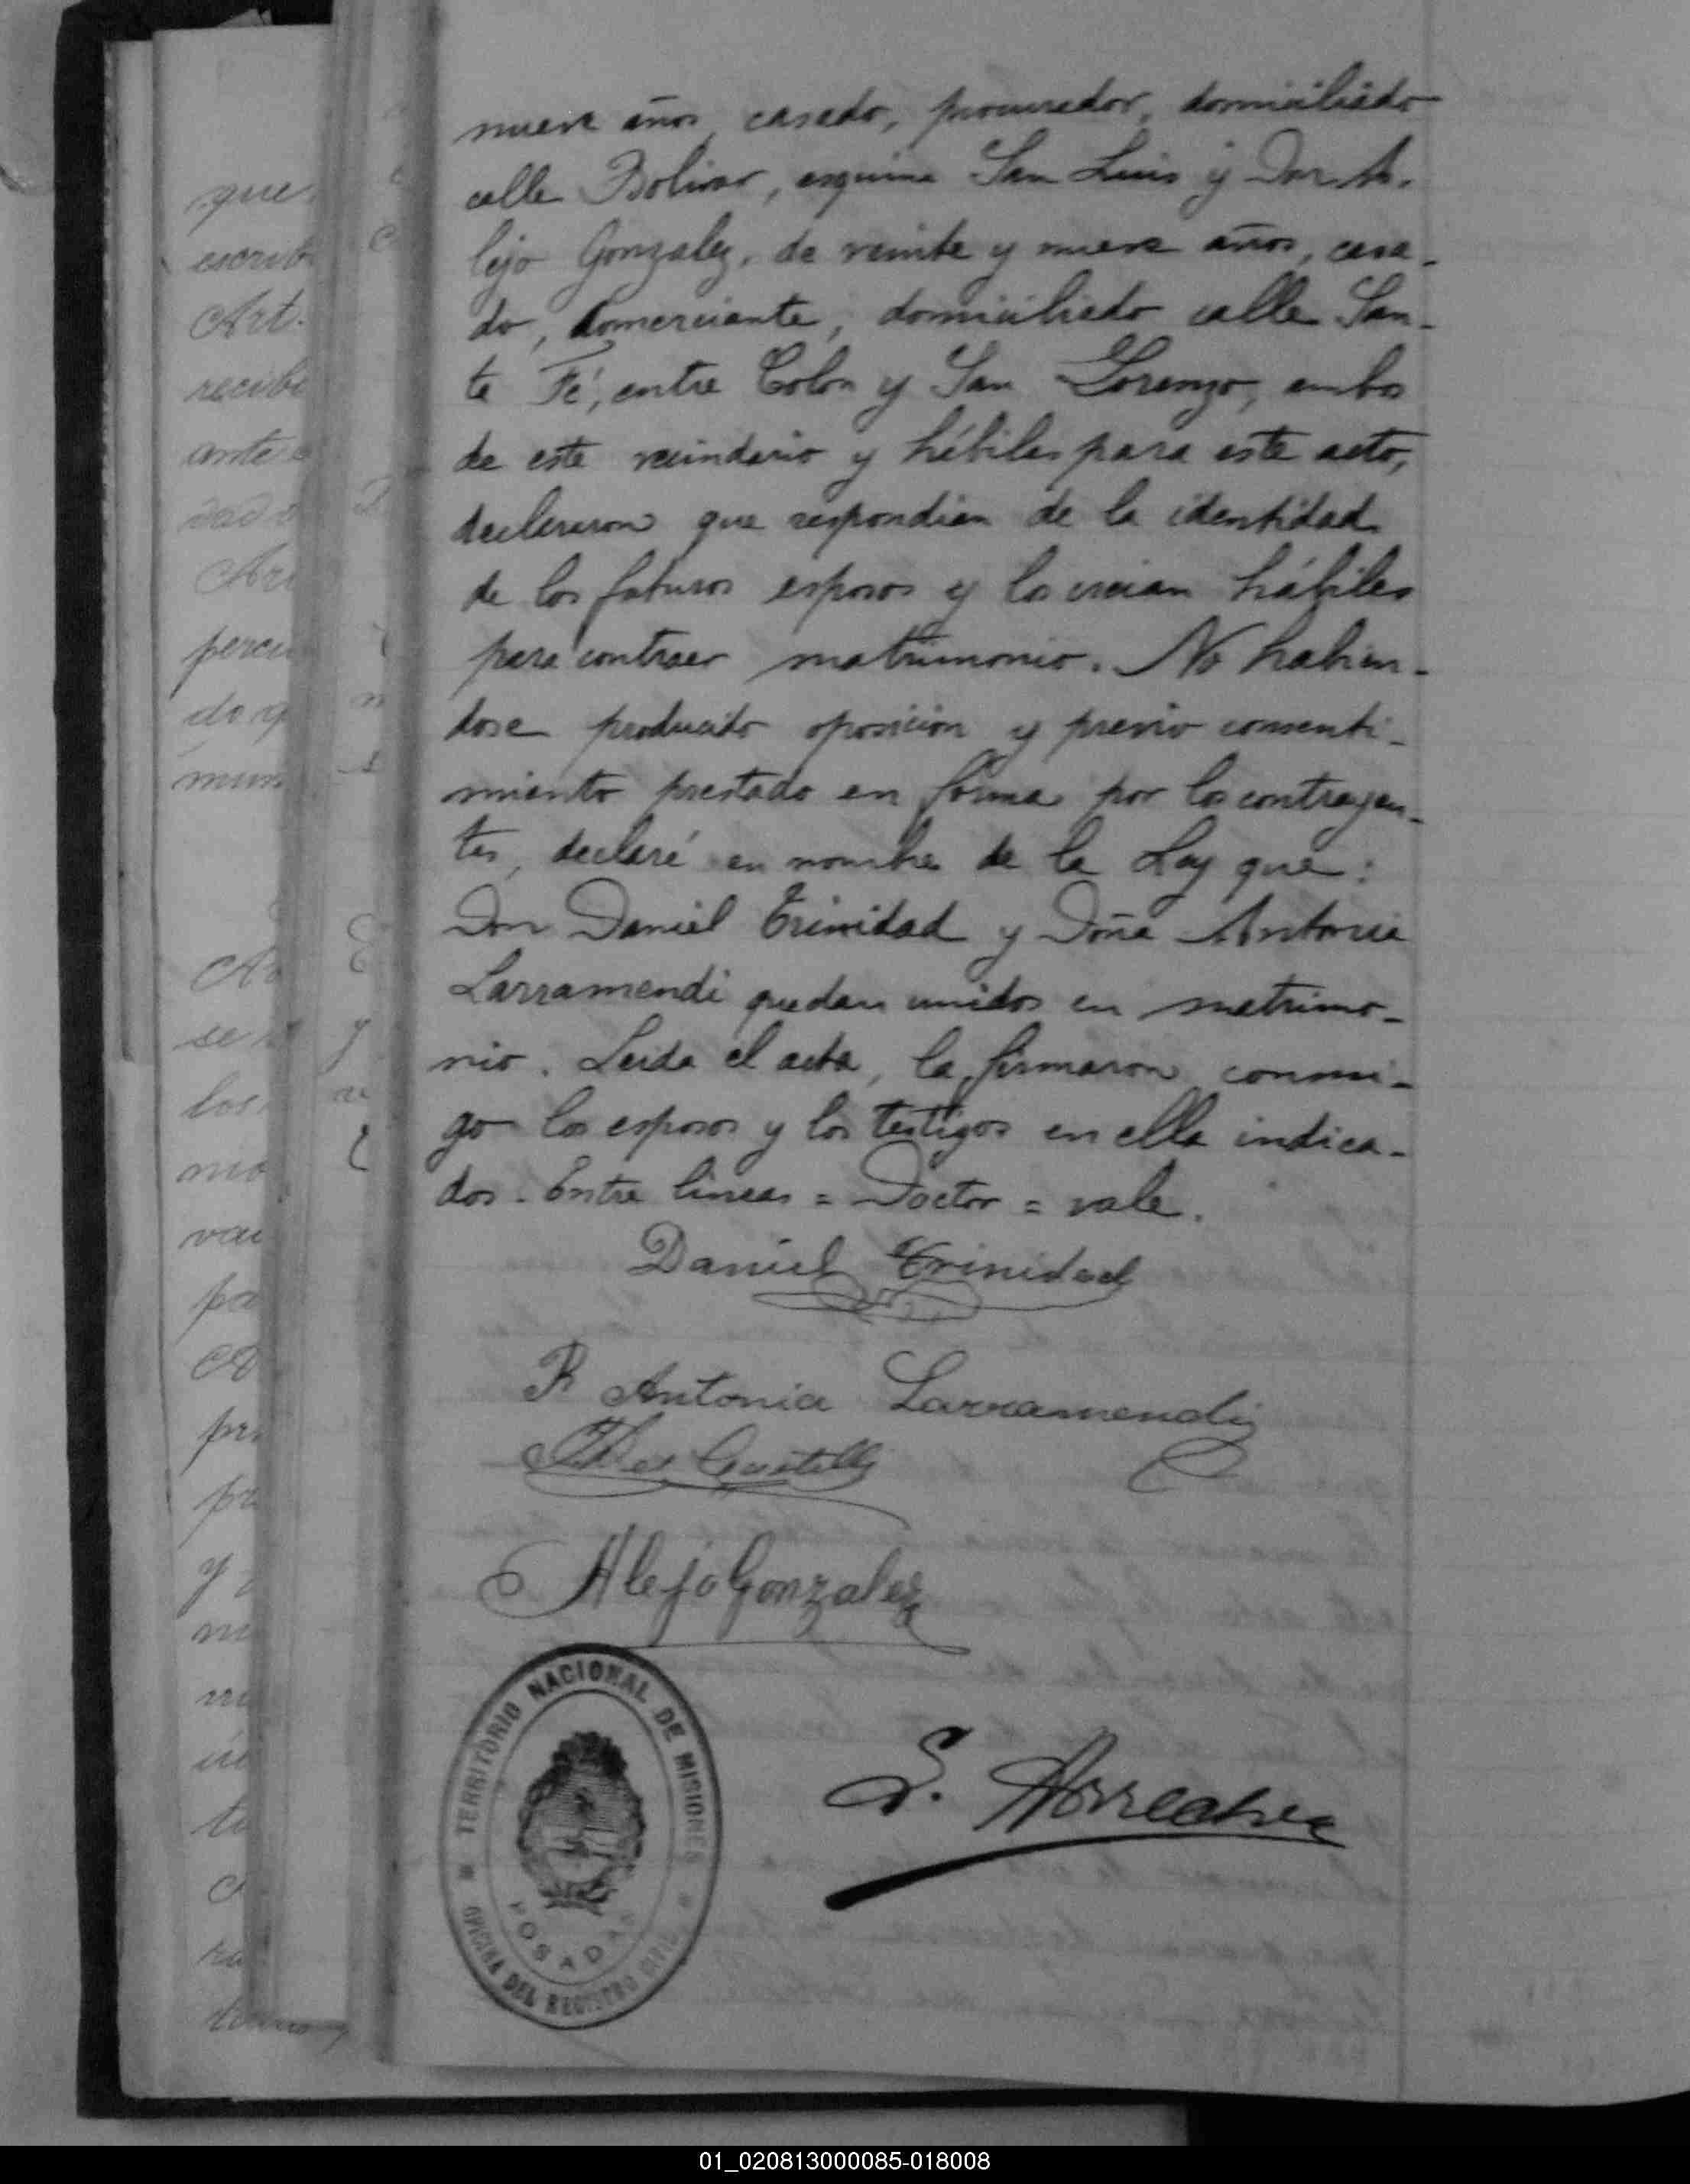 nueve años, casado, procurador, domiciliado
calle Bolivar, esquina San Luis y Don A-
lejo Gonzalez, de veinte y nueve años, casa-
do, comerciante, domiciliado calle San-
ta Fé, entre Colon y San Lorenzo, ambos
de este vecindario y hábiles para este acto,
declararon que respondian de la identidad
de los futuros esposos y los creian hábiles
para contraer matrimonio. No habien-
dose producido oposicion y previo consenti-
miento prestado en forma por los contrayen-
tes, declaré en nombre de la Ley que:
Don Daniel Trinidad y Doña Antonia
Larramendi quedan unidos en matrimo-
nio. Leida el acta, la firmaron conmi-
go los esposos y los testigos en ella indica-
dos. Entre lineas = Doctor = vale.
Daniel Trinidad
R Antonia Larramendi
Castelli
Alejo Gonzalez
TERRITORIO NACIONAL DE MISIONES
POSADAS
OFICINA DEL REGISTRO CIVIL
que
escrib
Art.
recibi
ante
perci
do q
mun
se
los
mo
vai
pa
pr
pr
y
01_020813000085-018008